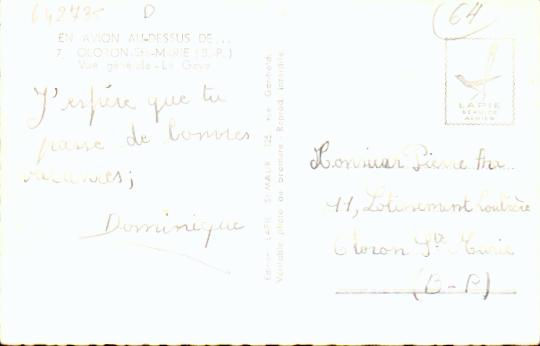 642735 D
64
EN AVION AU-DESSUS DE...
7. OLORON-Ste-MARIE (B.-P.)
Vue générale - Le Gave
J'espère que tu
passe de bonnes
vacances;
Dominique
Editions LAPIE St-MAUR 125, rue Garibaldi
Véritable photo au bromure - Reprod. interdite
LAPIE
SERVICE
AERIEN
Monsieur Pierre
11, Lotissement
Oloron Ste Marie
(B-P)